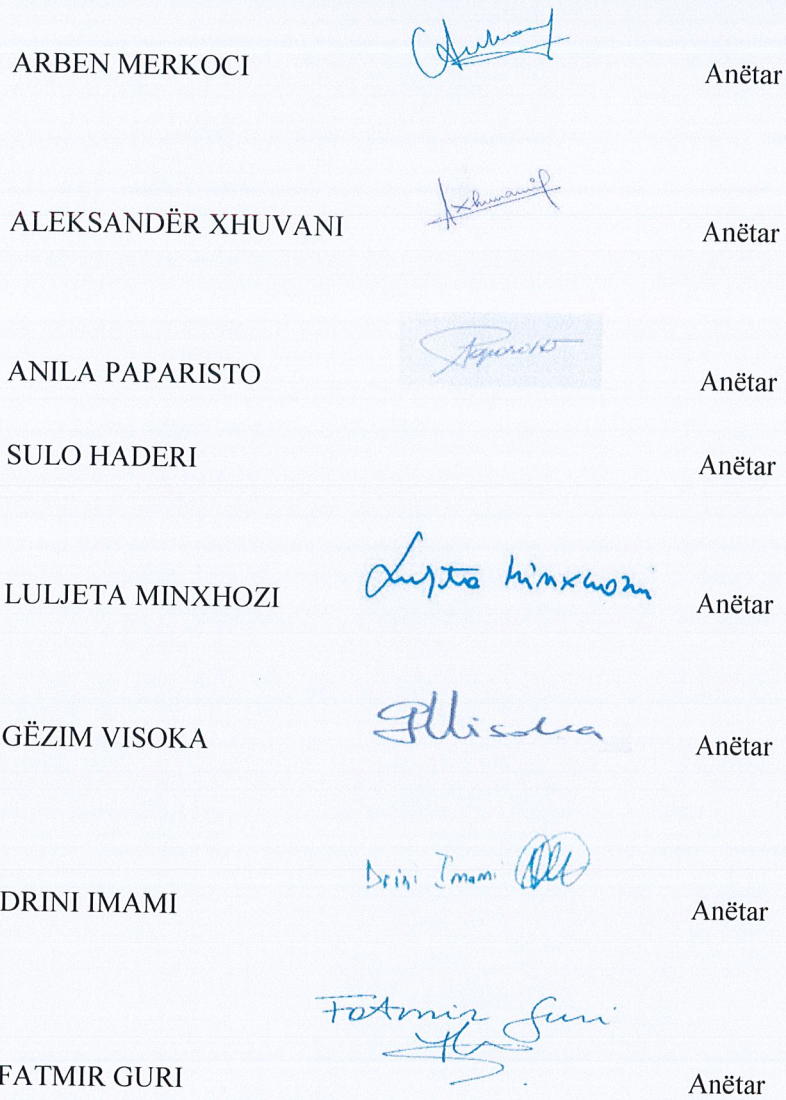 ARBEN MERKOCI Anëtar
Axhuvani
ALEKSANDËR XHUVANI Anëtar
Paparisto
ANILA PAPARISTO Anëtar
SULO HADERI Anëtar
Luljeta Minxhozi
LULJETA MINXHOZI Anëtar
GVisoka
GËZIM VISOKA Anëtar
Drini Imami
DRINI IMAMI Anëtar
Fatmir Guri
FATMIR GURI Anëtar